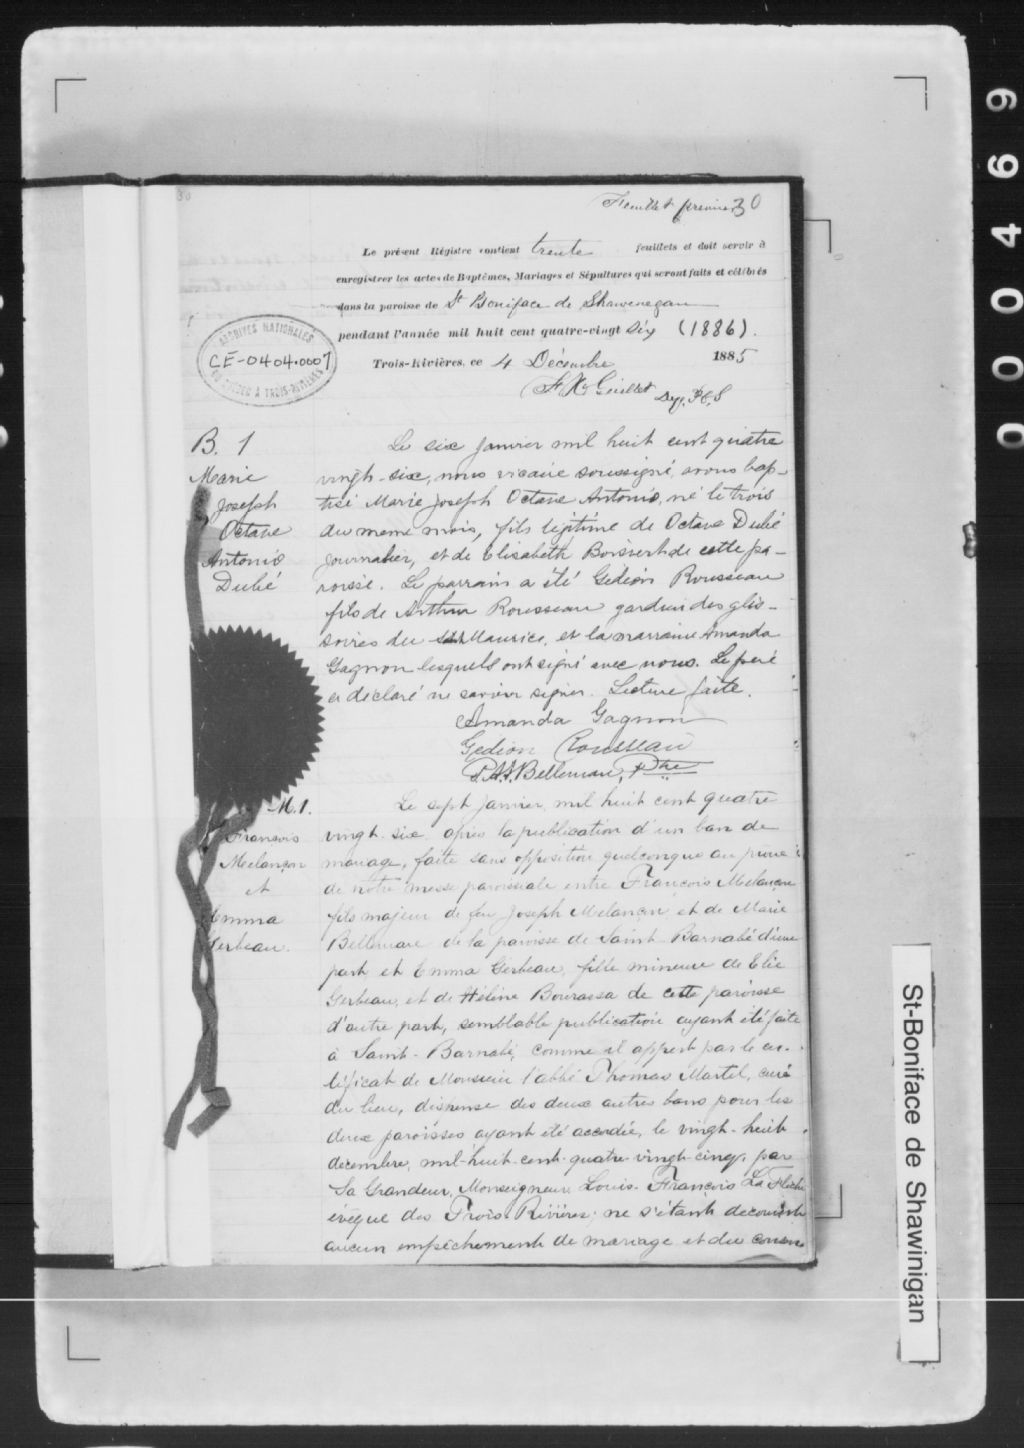 Feuillet premier 30
Le présent Régistre contient trente feuillets et doit servir à
enregistrer les actes de Baptêmes, Mariages et Sépultures qui seront faits et célébrés
dans la paroisse de St Boniface de Shawenegan
pendant l'année mil huit cent quatre-vingt six (1886).
Trois-Rivières, ce 4 Décembre 1885
F. X. Guillet Dep. P.C.S
ARCHIVES NATIONALES
CE-0404.0007
DU QUÉBEC À TROIS-RIVIÈRES
B. 1
Marie
Joseph
Octave
Antonio
Dubé
Le six janvier mil huit cent quatre
vingt-six, nous vicaire soussigné, avons bap-
tisé Marie Joseph Octave Antonio, né le trois
du meme mois, fils légitime de Octave Dubé
journalier, et de Elisabeth Boisvert de cette pa-
roisse. Le parrain a été Gédéon Rousseau
fils de Arthur Rousseau gardien des glis-
soires du St Maurice, et la marraine Amanda
Gagnon lesquels ont signé avec nous. Le père
a déclaré ne savoir signer. Lecture faite.
Amanda Gagnon
Gedion Rousseau
Bellemare, Ptre
M. 1.
François
Melançon
et
Emma
Gerbeau.
Le sept janvier, mil huit cent quatre
vingt-six, après la publication d'un ban de
mariage, faite sans opposition quelconque au prône
de notre messe paroissiale entre François Melançon
fils majeur de feu Joseph Melançon, et de Marie
Bellemare de la paroisse de Saint-Barnabé d'une
part et Emma Gerbeau, fille mineure de Elie
Gerbeau, et de Hélène Bourassa de cette paroisse
d'autre part, semblable publication ayant été faite
à Saint-Barnabé, comme il appert par le cer-
tificat de Monsieur l'abbé Thomas Martel, curé
du lieu, dispense des deux autres bans pour les
deux paroisses ayant été accordée, le vingt-huit
décembre, mil-huit-cent-quatre-vingt-cinq, par
Sa Grandeur, Monseigneur Louis-François La Flèche
évêque des Trois-Rivières; ne s'étant découvert
aucun empêchement de mariage et du consen
St-Boniface de Shawinigan
000469